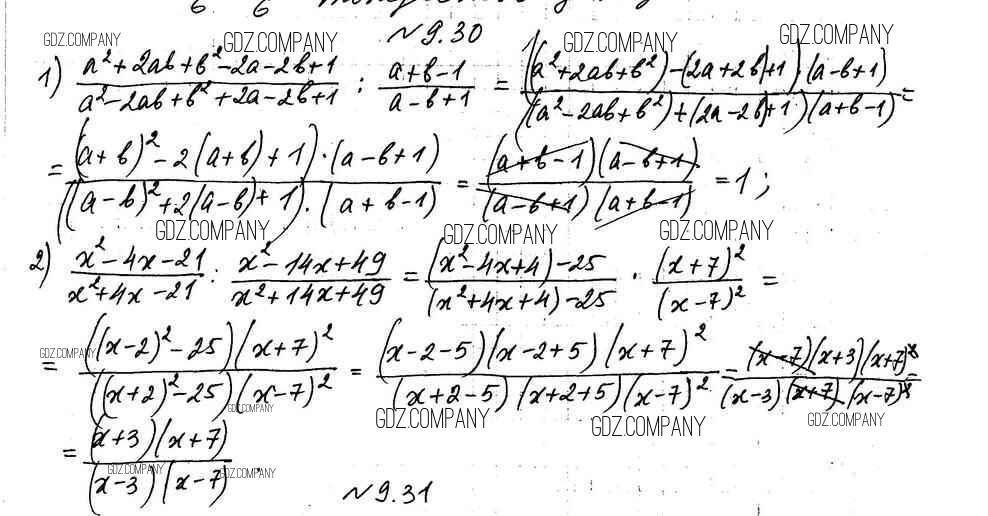 GDZ.COMPANY GDZ.COMPANY №9.30 GDZ.COMPANY GDZ.COMPANY
1) (a²+2ab+b²-2a-2b+1)/(a²-2ab+b²+2a-2b+1) : (a+b-1)/(a-b+1) = ((a²+2ab+b²)-(2a+2b)+1)·(a-b+1)/((a²-2ab+b²)+(2a-2b)+1)(a+b-1) =
= ((a+b)²-2(a+b)+1)·(a-b+1)/((a-b)²+2(a-b)+1)·(a+b-1) = (a+b-1)(a-b+1)/(a-b+1)(a+b-1) = 1;
GDZ.COMPANY GDZ.COMPANY GDZ.COMPANY
2) (x²-4x-21)/(x²+4x-21) : (x²-14x+49)/(x²+14x+49) = ((x²-4x+4)-25)/((x²+4x+4)-25) · (x+7)²/(x-7)² =
GDZ.COMPANY
= ((x-2)²-25)(x+7)²/((x+2)²-25)(x-7)² = (x-2-5)(x-2+5)(x+7)²/(x+2-5)(x+2+5)(x-7)² = (x-7)(x+3)(x+7)²/(x-3)(x+7)(x-7)² =
GDZ.COMPANY GDZ.COMPANY GDZ.COMPANY GDZ.COMPANY
= (x+3)(x+7)/(x-3)(x-7).
GDZ.COMPANY GDZ.COMPANY
№9.31